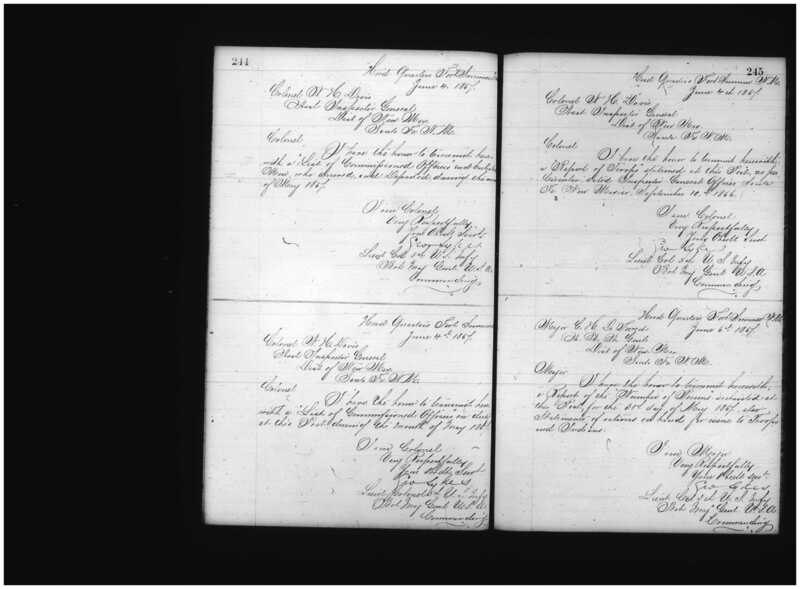 244
Head Quarters Fort Sumner
June 4. 1867.
Colonel N. H. Davis
Asst Inspector General
Dist of New Mex
Santa Fe N. M.
Colonel
I have the honor to transmit here
with a "List of Commissioned Officers and Enlisted
Men, who arrived and departed during the
of May 1867.
I am Colonel
Very Respectfully
Your Obedt Servt
Geo Sykes
Lieut Col 5th U. S. Infy
Bvt Maj Genl U. S. A.
Commanding
Head Quarters Fort Sumner
June 4th 1867.
Colonel N. H. Davis
Asst Inspector General
Dist of New Mex
Santa Fe N. M.
Colonel
I have the honor to transmit here
with a "List of Commissioned Officers" on duty
at this Post during the month of May 1867
I am Colonel
Very Respectfully
Your Obedt Servt
Geo Sykes
Lieut Colonel 5th U. S. Infy
Bvt Maj Genl U. S. A.
Commanding
245
Head Quarters Fort Sumner N. M.
June 4th 1867.
Colonel N. H. Davis
Asst Inspector General
Dist of New Mex
Santa Fe N. M.
Colonel
I have the honor to transmit herewith
a Report of Troops stationed at this Post, as per
Circular dated Inspector General Office Santa
Fe New Mexico, September 10th 1866.
I am Colonel
Very Respectfully
Your Obedt Servt
Geo Sykes
Lieut Col 5th U. S. Infy
Bvt Maj Genl U. S. A.
Commanding
Head Quarters Fort Sumner N. M.
June 6th 1867.
Major C. H. De Forrest
Dist of New Mex
Santa Fe N. M.
Major
I have the honor to transmit herewith
a Report of the Number of Indians at
this Post, for the 31st day of May 1867. also
Statement of rations on hand for issue to Troops
and Indians.
I am Major
Very Respectfully
Your Obedt Servt
Geo Sykes
Lieut Col 5th U. S. Infy
Bvt Maj Genl U. S. A.
Commanding